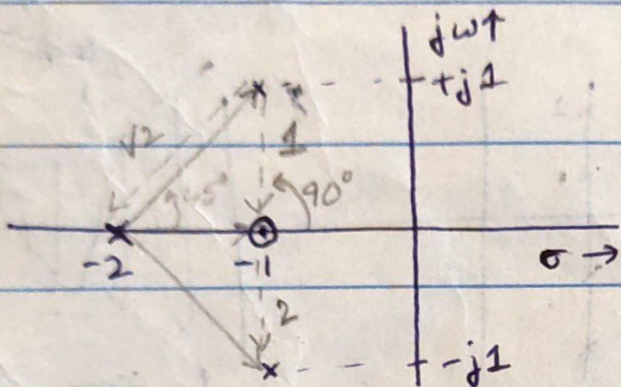 jω↑
+j1
√2
1
90°
-2
-1
σ →
2
-j1